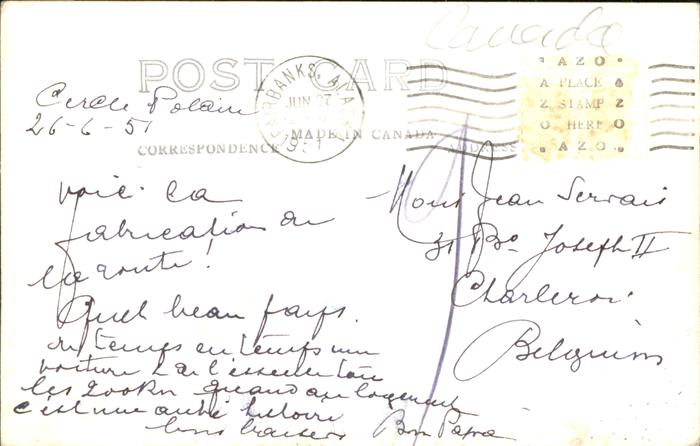 Canada
POST CARD
AZO
A PLACE A
Z STAMP Z
O HERE O
AZO
FAIRBANKS, ALASKA
JUN 27
1951
MADE IN CANADA
CORRESPONDENCE
ADDRESS
Cercle Polaire
26-6-51
Voici la
fabrication de
la route!
Quel beau pays.
de temps en temps une
voiture de l'essence
les 200km quand au logement
c'est une autre histoire
bons baisers Bon Papa
Mons Jean Servais
31 Bd Joseph II
Charleroi
Belgium